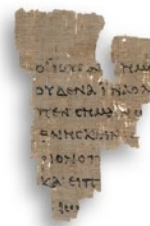 ΟΙ ΙΟΥΔΑΙ ΗΜ
ΟΥΔΕΝΑ ΙΝΑ Ο ΛΟ
ΠΕΝ CΗΜΑΙΝΩ
ΘΝΗCΚΕΙΝ
ΡΙΟΝ Ο Π
ΚΑΙ ΕΙΠ